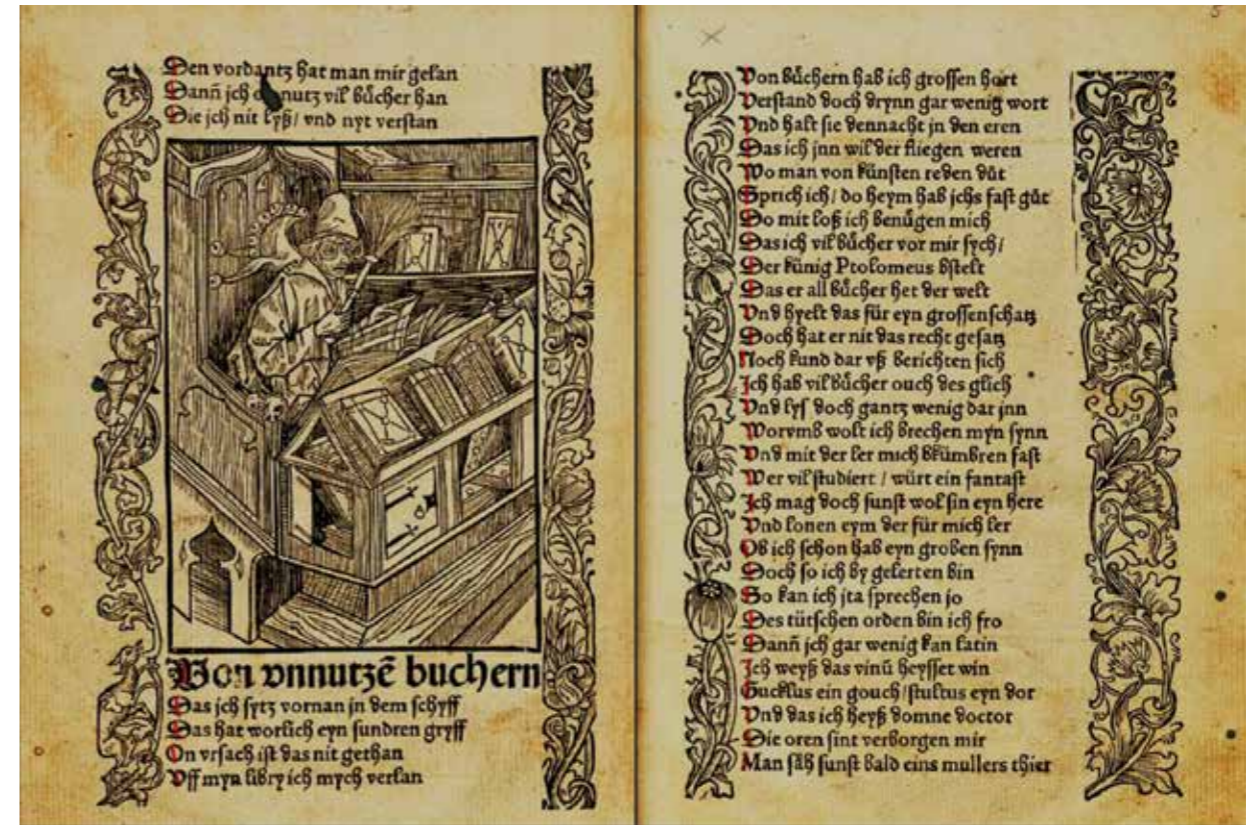 Den vordantz hat man mir gelan
Dann̄ jch on nutz vil buͤcher han
Die jch nit lyß / vnd nyt verstan
Von vnnutzē buchern
Das jch sytz vornan jn dem schyff
Das hat worlich eyn sundren gryff
On vrsach ist das nit gethan
Vff myn libry ich mych verlan
Von buͤchern hab ich grossen hort
Verstand doch drynn gar wenig wort
Vnd halt sie dennacht jn den eren
Das ich jnn wil der fliegen weren
Wo man von kuͤnsten reden duͦt
Sprich ich / do heym hab jchs fast guͦt
Do mit loß ich benuͤgen mich
Das ich vil buͤcher vor mir sych /
Der kuͤnig Ptolomeus bstelt
Das er all buͤcher het der welt
Vnd hyelt das fuͤr eyn grossen schatz
Doch hat er nit das recht gesatz
Noch kund dar vß berichten sich
Jch hab vil buͤcher ouch des glich
Vnd lys doch gantz wenig dar jnn
Worvmb wolt ich brechen myn synn
Vnd mit der ler mich bkuͤmbren fast
Wer vil studiert / wuͤrt ein fantast
Jch mag doch sunst wol sin eyn here
Vnd lonen eym der fuͤr mich ler
Ob ich schon hab eyn groben synn
Doch so ich by gelerten bin
So kan ich jta sprechen jo
Des tuͤtschen orden bin ich fro
Dann̄ jch gar wenig kan latin
Jch weyß das vinū heysset win
Gucklus ein gouch / stultus eyn dor
Vnd das ich heyß domne doctor
Die oren sint verborgen mir
Man saͤh sunst bald eins mullers thier